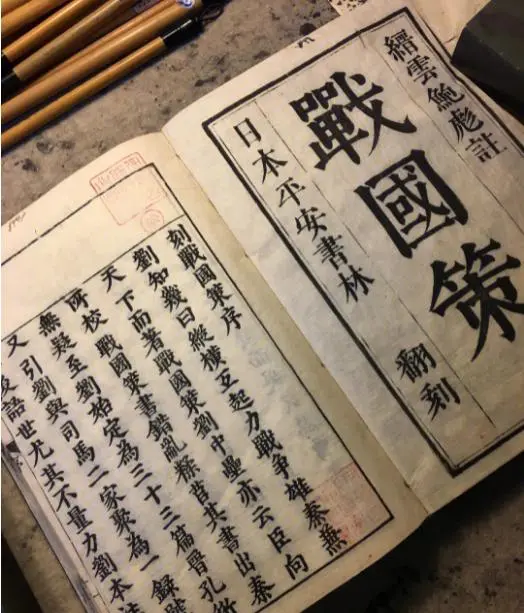 縉雲鮑彪註
戰國策
日本平安書林 翻刻
刻戰國策序
劉知幾曰縱橫互起力戰爭雄秦無
天下而著戰國策劉中壘亦云臣向
所校戰國策書錯亂糅莒其書出秦
無疑至劉始定為三十三篇晉孔衍
又引劉與司馬二家聚為一錄號
語世尤其不量力劉本